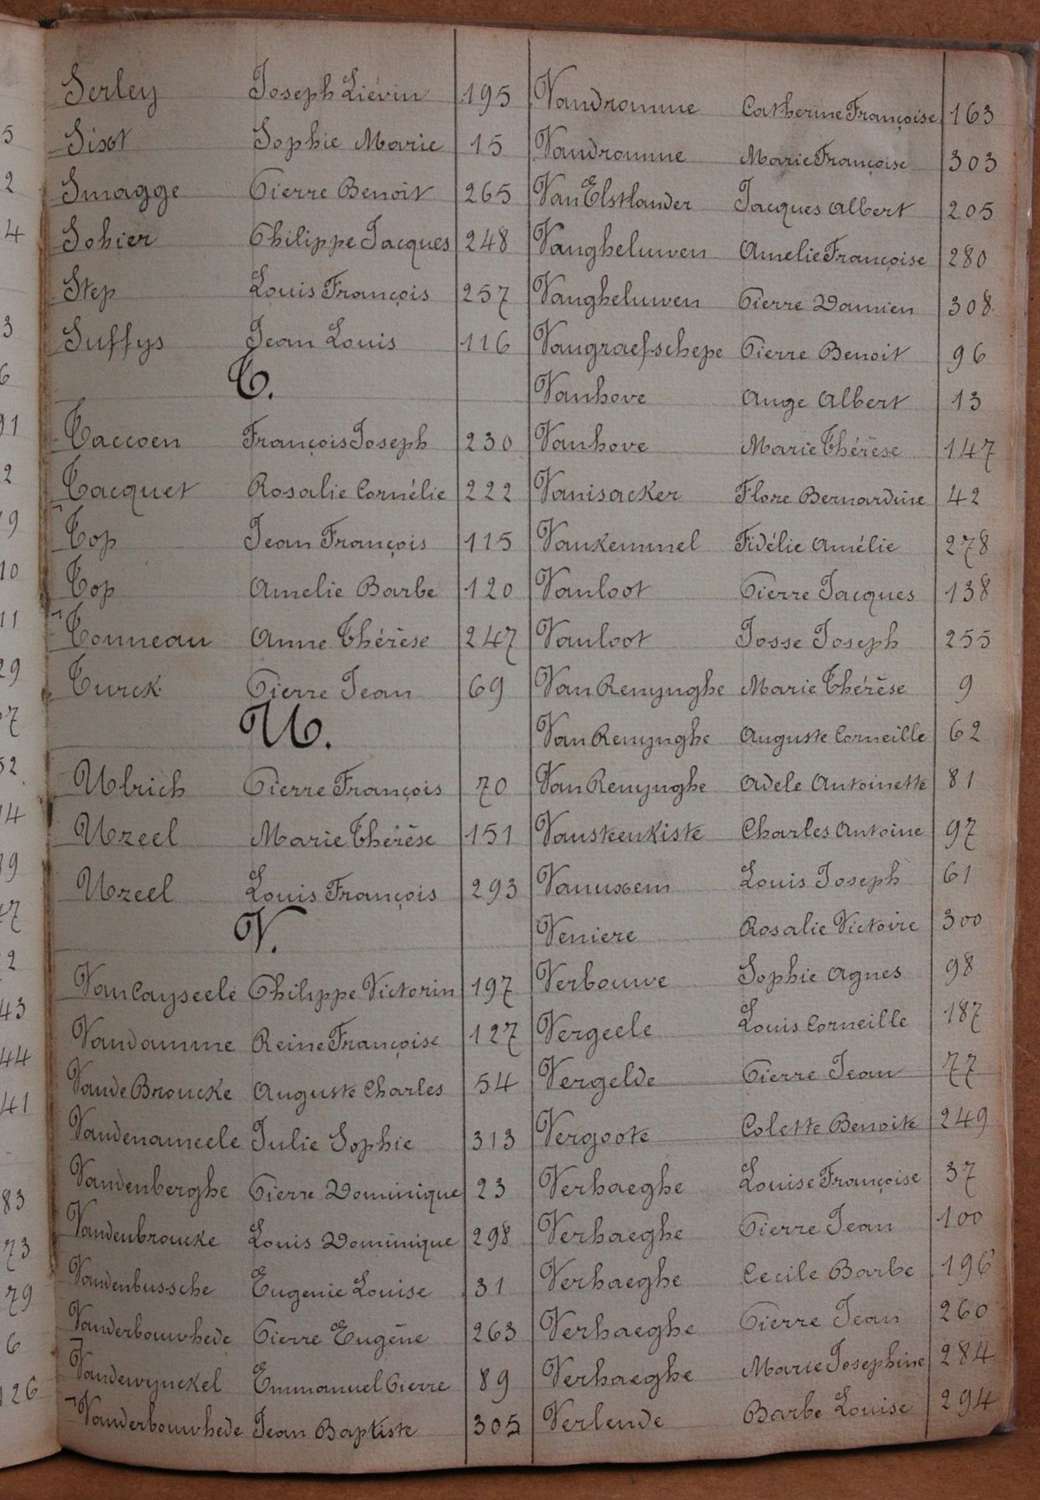 Serley Joseph Liévin 195
Sixt Sophie Marie 15
Smagge Pierre Benoit 265
Sohier Philippe Jacques 248
Step Louis François 257
Suffys Jean Louis 116
T.
Taccoen François Joseph 230
Tacquet Rosalie Cornélie 222
Top Jean François 115
Top Amelie Barbe 120
Tonneau Anne Thérèse 247
Turck Pierre Jean 69
U.
Ulrich Pierre François 70
Uzeel Marie Thérèse 151
Uzeel Louis François 293
V.
Van Cayseele Philippe Victorin 197
Vandamme Reine Françoise 127
Vande Broucke Auguste Charles 54
Vandenameele Julie Sophie 313
Vandenberghe Pierre Dominique 23
Vandenbroucke Louis Dominique 298
Vandenbussche Eugenie Louise 31
Vanderbouwhede Pierre Eugène 263
Vandewynckel Emmanuel Pierre 89
Vanderbouwhede Jean Baptiste 305
Vandromme Catherine Françoise 163
Vandromme Marie Françoise 303
Van Elstlander Jacques Albert 205
Vangheluwen Amelie Françoise 280
Vangheluwen Pierre Damien 308
Vangraefschepe Pierre Benoit 96
Vanhove Ange Albert 13
Vanhove Marie Thérèse 147
Vanisacker Flore Bernardine 42
Vankemmel Fidélie Amélie 278
Vanloot Pierre Jacques 138
Vanloot Josse Joseph 255
Van Renynghe Marie Thérèse 9
Van Renynghe Auguste Corneille 62
Van Renynghe Adele Antoinette 81
Vansteenkiste Charles Antoine 97
Vanuxem Louis Joseph 61
Veniere Rosalie Victoire 300
Verbouwe Sophie Agnes 98
Vergeele Louis Corneille 187
Vergelde Pierre Jean 77
Vergoote Colette Benoite 249
Verhaeghe Louise Françoise 37
Verhaeghe Pierre Jean 100
Verhaeghe Cecile Barbe 196
Verhaeghe Pierre Jean 260
Verhaeghe Marie Josephine 284
Verlende Barbe Louise 294